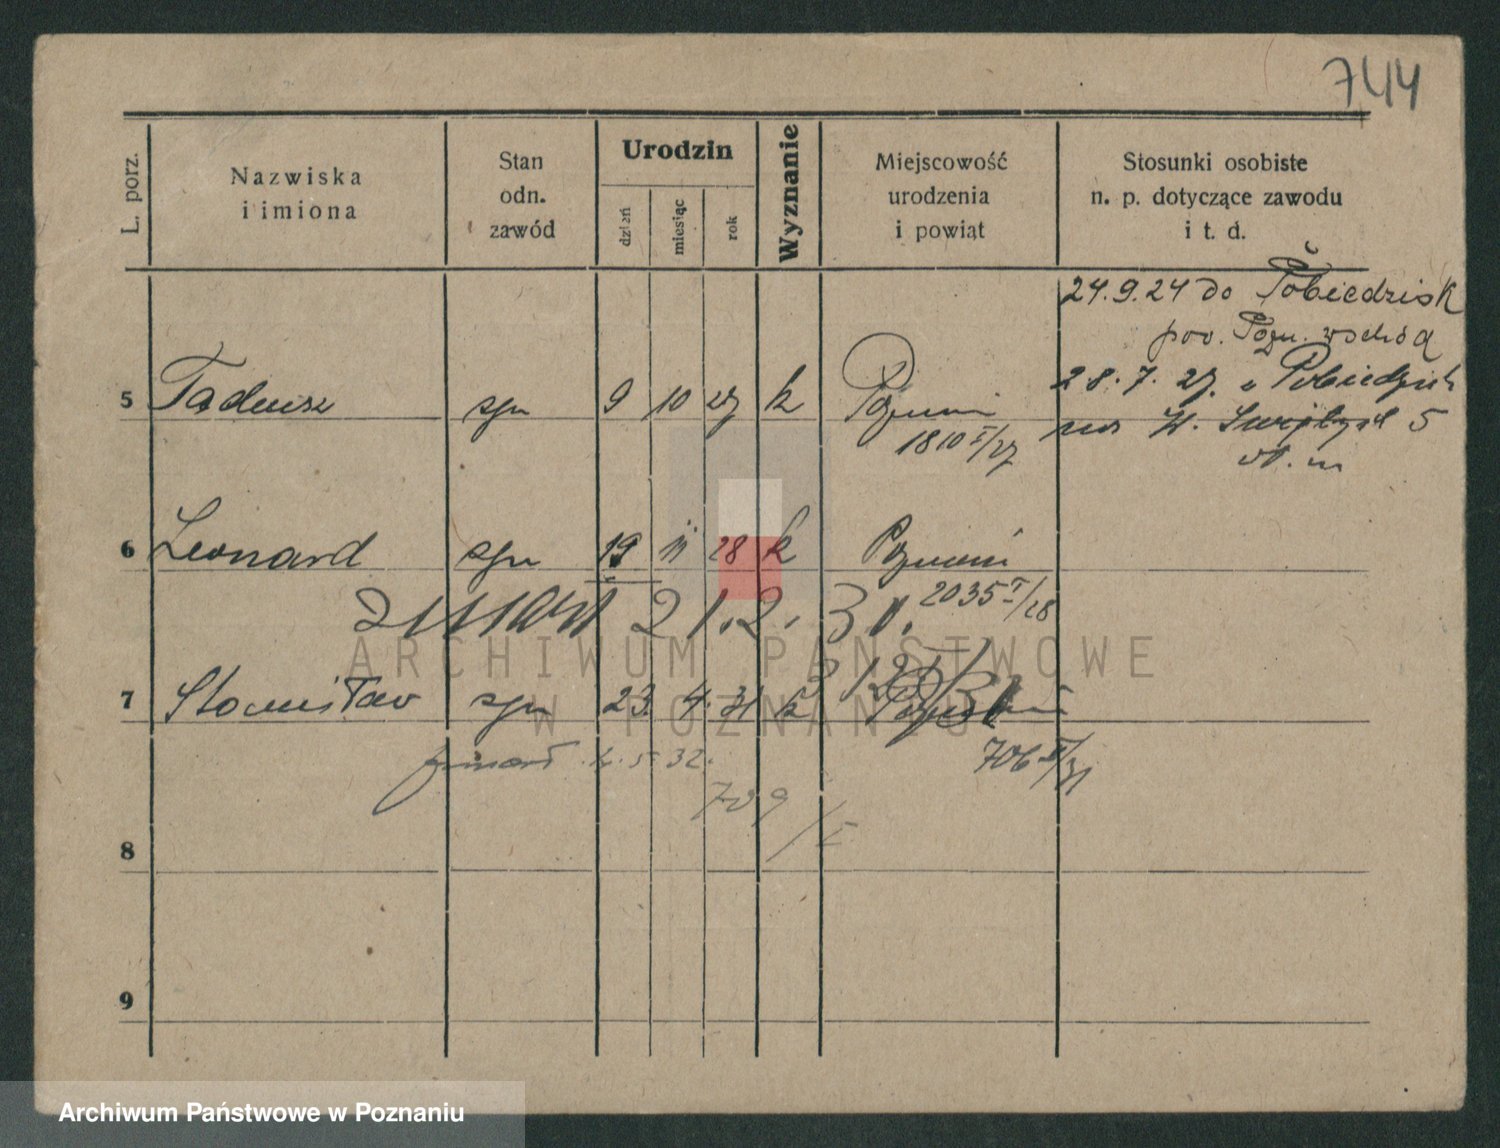 744
L. porz.
Nazwiska
i imiona
Stan
odn.
zawód
Urodzin
dzień
miesiąc
rok
Wyznanie
Miejscowość
urodzenia
i powiat
Stosunki osobiste
n. p. dotyczące zawodu
i t. d.
24.9.24 do Pobiedzisk
pow. Pozn. wschód
5 Tadeusz syn 9 10 27 k Poznań
28.7.27. z Pobiedzisk
1810 I/27
na W. 5
6 Leonard syn 19 11 28 k Poznań
2035 I/28
zmarł 21.2.31.
7 Stanisław syn 23. 4. 31 k Poznań
zmarł 4.5.32.
706 II/31
709/I
8
9
ARCHIWUM PAŃSTWOWE
W POZNANIU
Archiwum Państwowe w Poznaniu